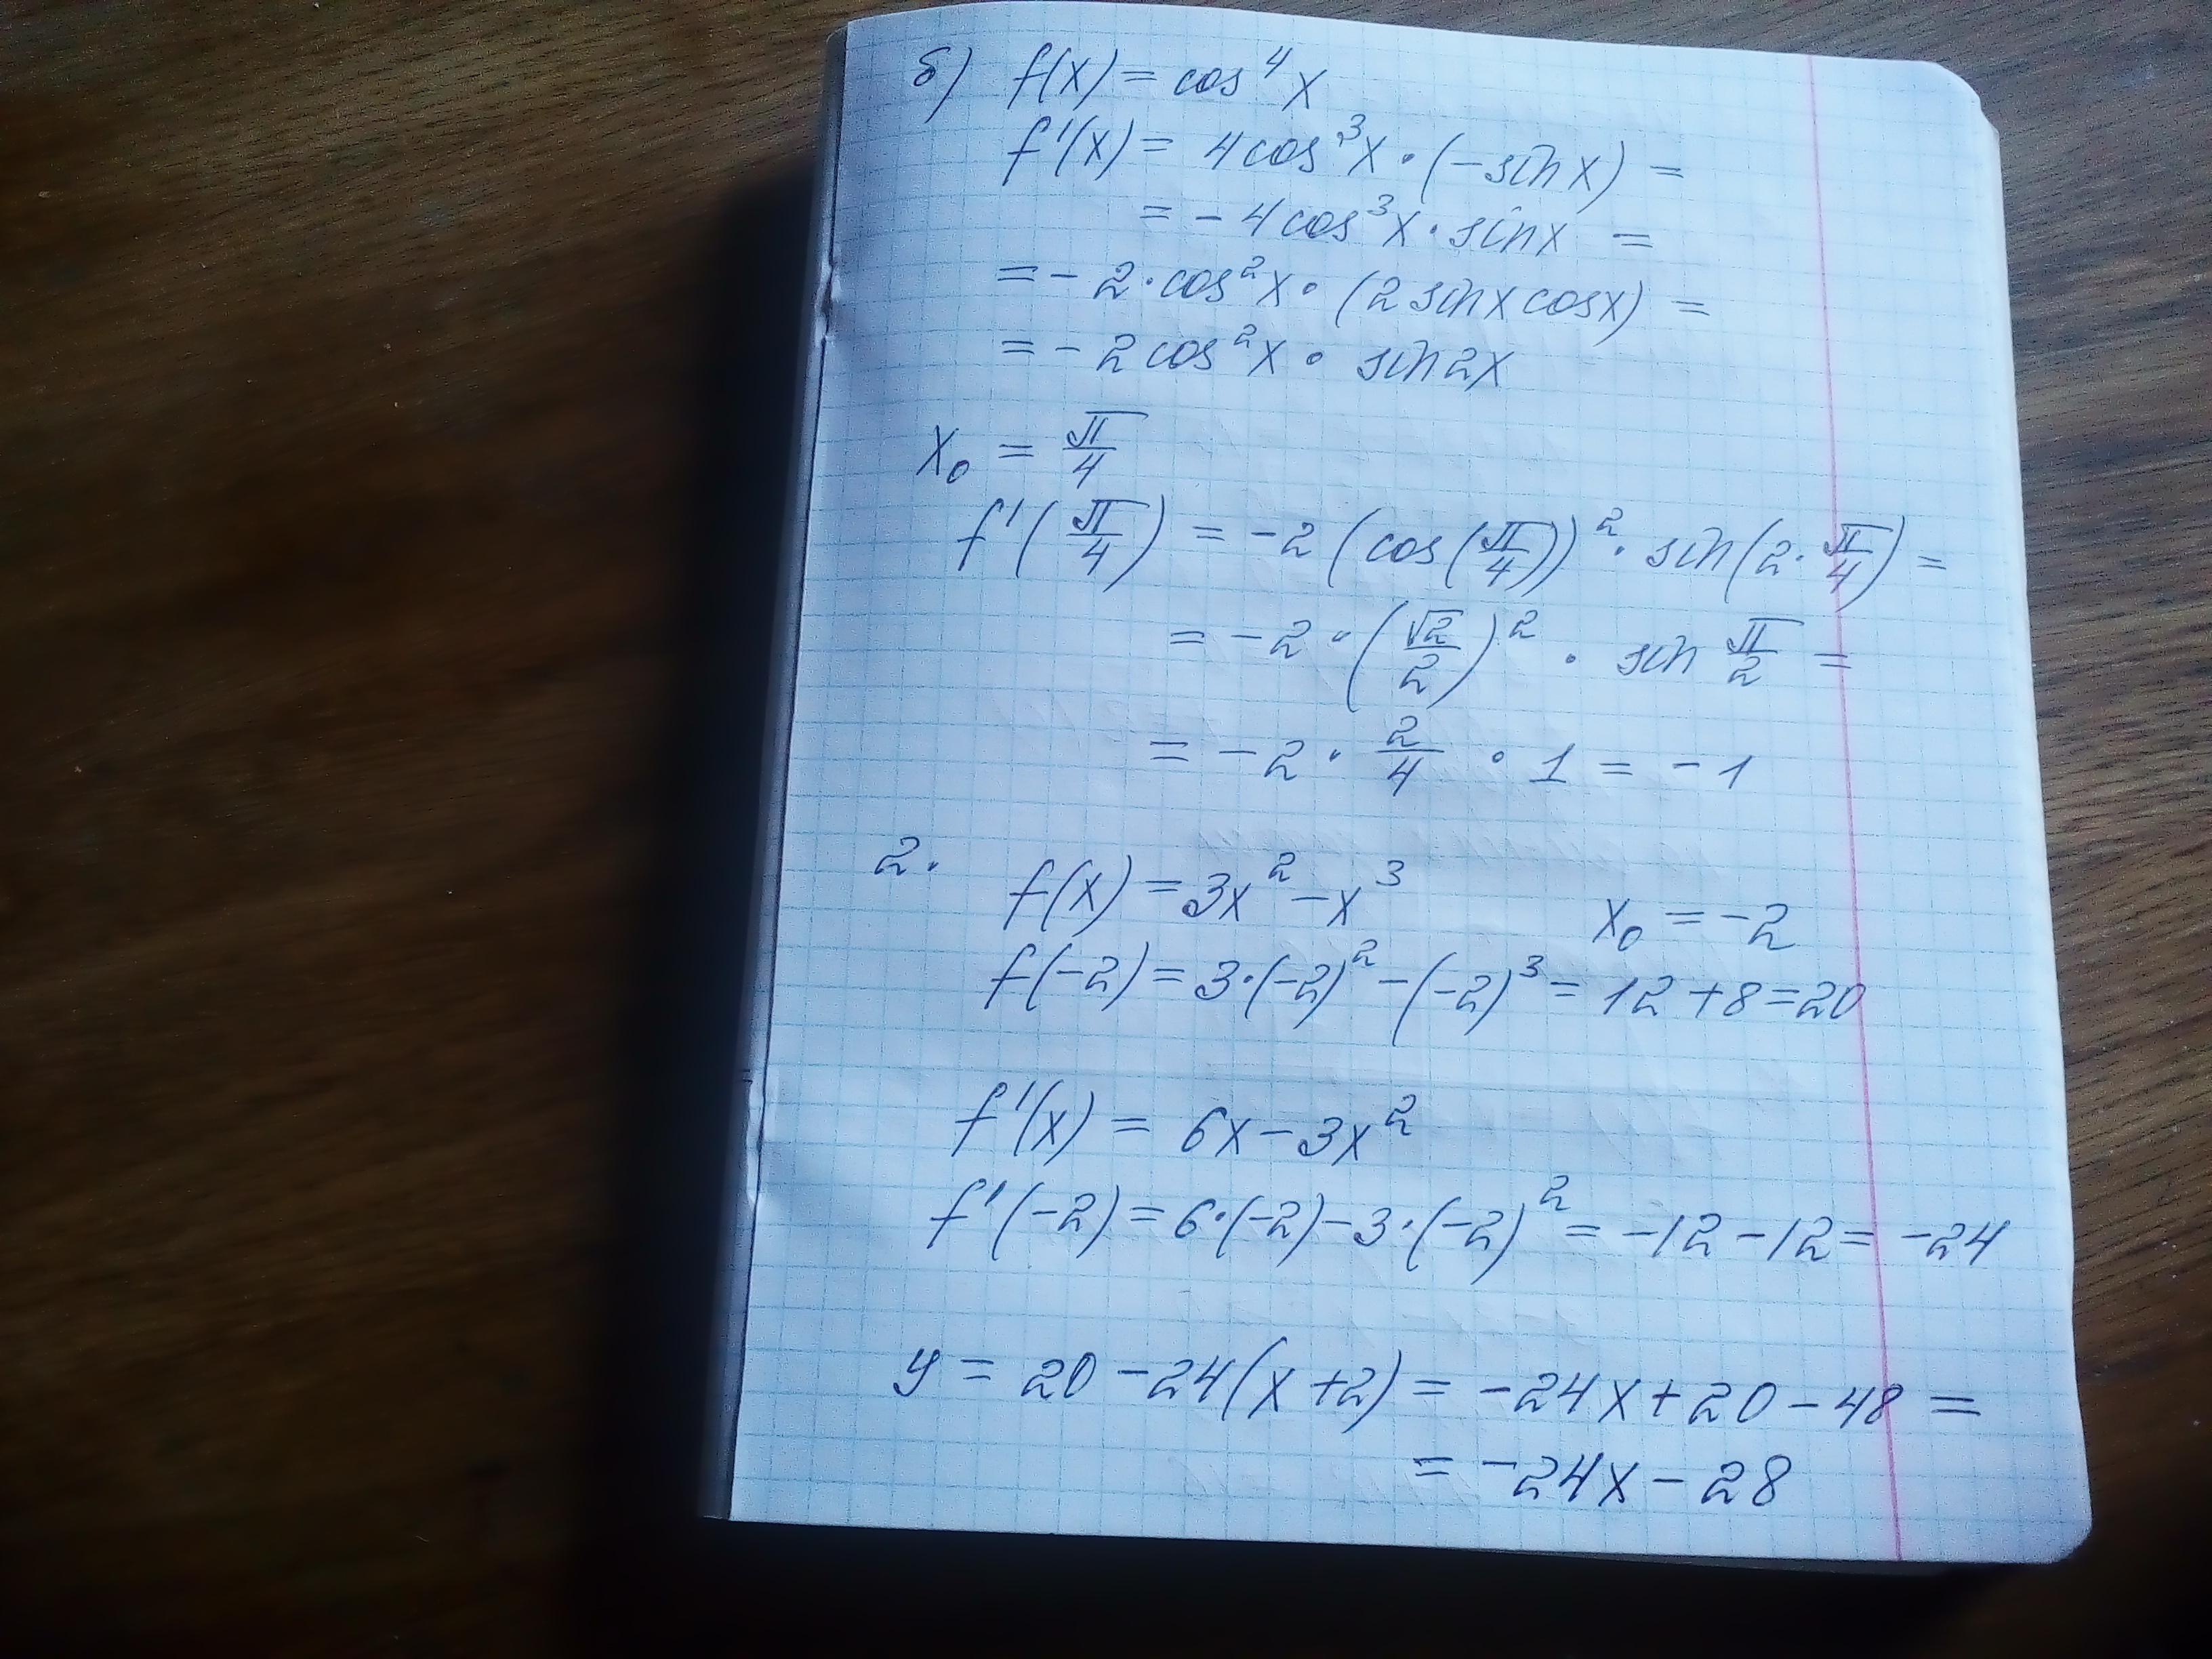 б) f(x) = cos⁴x
f'(x) = 4cos³x · (-sinx) =
= - 4cos³x · sinx =
= - 2 · cos²x · (2sinxcosx) =
= - 2cos²x · sin2x
x₀ = π/4
f'(π/4) = -2(cos(π/4))² · sin(2 · π/4) =
= -2 · (√2/2)² · sin π/2 =
= -2 · 2/4 · 1 = -1
2. f(x) = 3x² - x³ x₀ = -2
f(-2) = 3·(-2)² - (-2)³ = 12 + 8 = 20
f'(x) = 6x - 3x²
f'(-2) = 6·(-2) - 3·(-2)² = -12 - 12 = -24
y = 20 - 24(x + 2) = -24x + 20 - 48 =
= -24x - 28